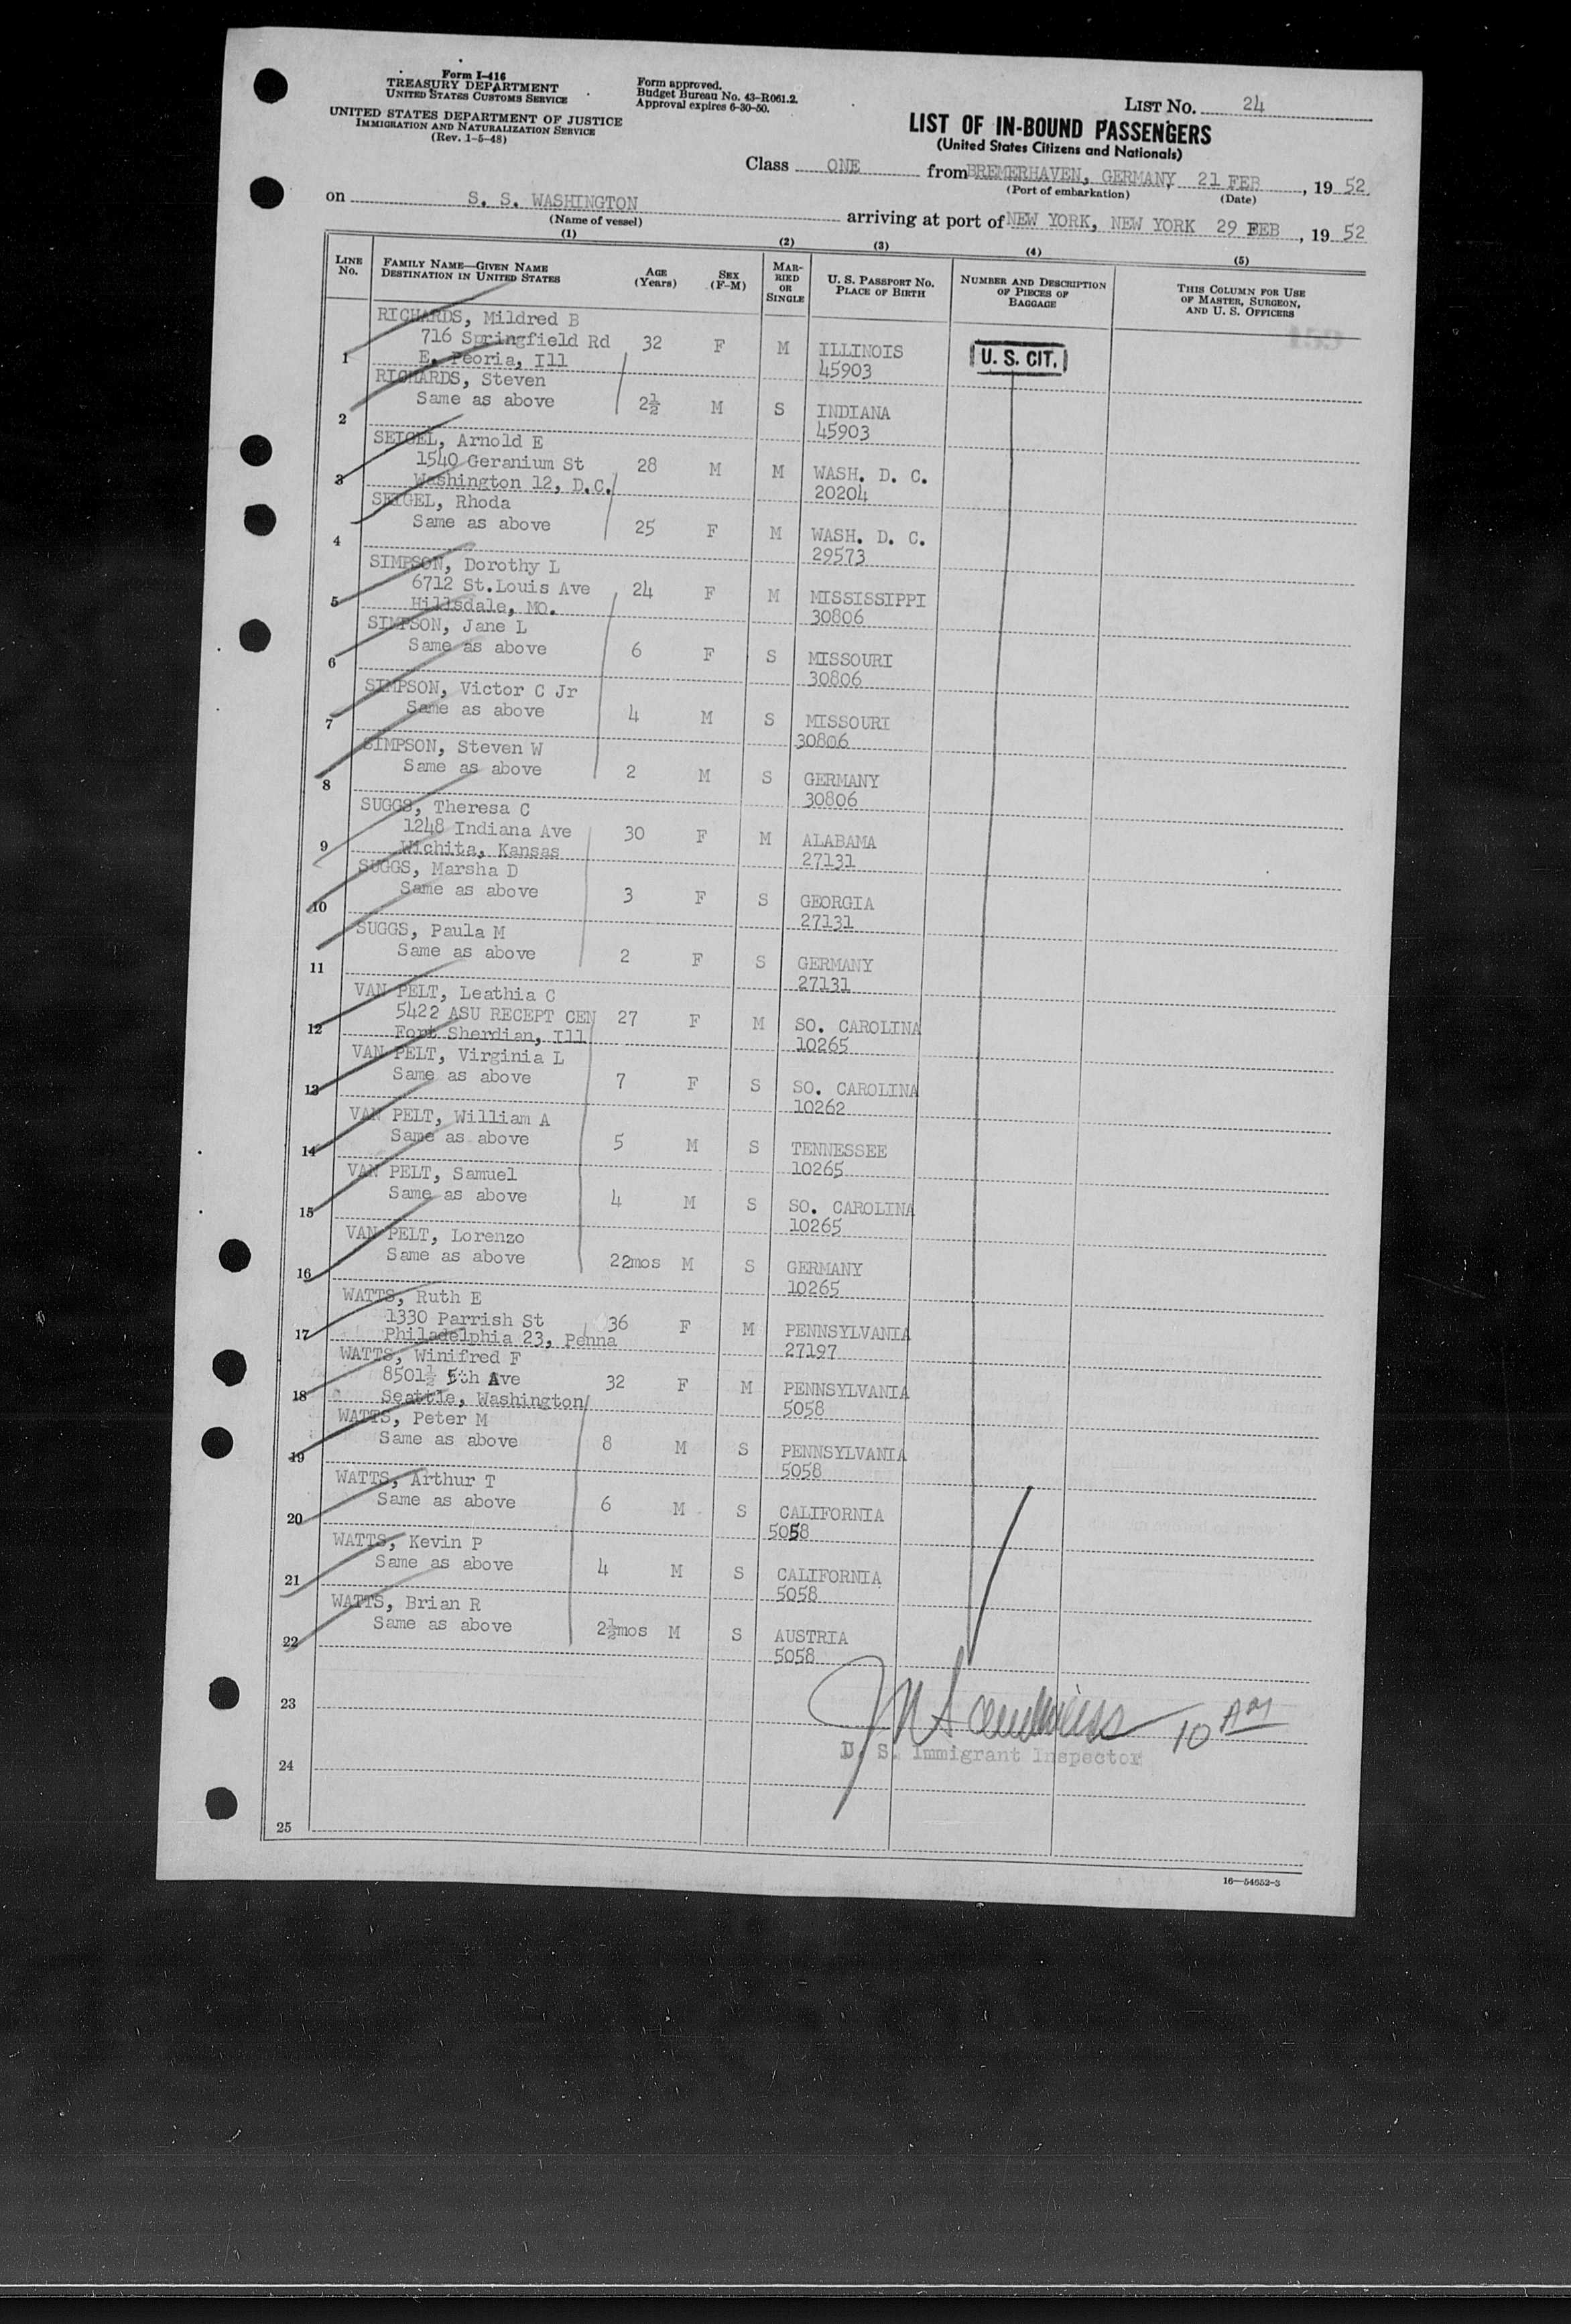 Form I-416
TREASURY DEPARTMENT
UNITED STATES CUSTOMS SERVICE
UNITED STATES DEPARTMENT OF JUSTICE
IMMIGRATION AND NATURALIZATION SERVICE
(Rev. 1-5-48)
Form approved.
Budget Bureau No. 43-R061.2.
Approval expires 6-30-50.
LIST No. 24
LIST OF IN-BOUND PASSENGERS
(United States Citizens and Nationals)
Class ONE from BREMERHAVEN, GERMANY 21 FEB, 19 52
(Port of embarkation) (Date)
on S. S. WASHINGTON arriving at port of NEW YORK, NEW YORK 29 FEB, 19 52
(Name of vessel)
(1) (2) (3) (4) (5)
LINE No. FAMILY NAME—GIVEN NAME DESTINATION IN UNITED STATES AGE (Years) SEX (F-M) MARRIED OR SINGLE U. S. PASSPORT NO. PLACE OF BIRTH NUMBER AND DESCRIPTION OF PIECES OF BAGGAGE THIS COLUMN FOR USE OF MASTER, SURGEON, AND U. S. OFFICERS
159
RICHARDS, Mildred B
716 Springfield Rd 32 F M ILLINOIS U. S. CIT.
1 E. Peoria, Ill 45903
RICHARDS, Steven
Same as above 2½ M S INDIANA
2 45903
SEIGEL, Arnold E
1540 Geranium St 28 M M WASH. D. C.
3 Washington 12, D.C. 20204
SEIGEL, Rhoda
Same as above 25 F M WASH. D. C.
4 29573
SIMPSON, Dorothy L
6712 St.Louis Ave 24 F M MISSISSIPPI
5 Hillsdale, MO. 30806
SIMPSON, Jane L
Same as above 6 F S MISSOURI
6 30806
SIMPSON, Victor C Jr
Same as above 4 M S MISSOURI
7 30806
SIMPSON, Steven W
Same as above 2 M S GERMANY
8 30806
SUGGS, Theresa C
1248 Indiana Ave 30 F M ALABAMA
9 Wichita, Kansas 27131
SUGGS, Marsha D
Same as above 3 F S GEORGIA
10 27131
SUGGS, Paula M
Same as above 2 F S GERMANY
11 27131
VAN PELT, Leathia C
5422 ASU RECEPT CEN 27 F M SO. CAROLINA
12 Fort Sherdian, Ill 10265
VAN PELT, Virginia L
Same as above 7 F S SO. CAROLINA
13 10262
VAN PELT, William A
Same as above 5 M S TENNESSEE
14 10265
VAN PELT, Samuel
Same as above 4 M S SO. CAROLINA
15 10265
VAN PELT, Lorenzo
Same as above 22mos M S GERMANY
16 10265
WATTS, Ruth E
1330 Parrish St 36 F M PENNSYLVANIA
17 Philadelphia 23, Penna 27197
WATTS, Winifred F
8501½ 5th Ave 32 F M PENNSYLVANIA
18 Seattle, Washington 5058
WATTS, Peter M
Same as above 8 M S PENNSYLVANIA
19 5058
WATTS, Arthur T
Same as above 6 M S CALIFORNIA
20 5058
WATTS, Kevin P
Same as above 4 M S CALIFORNIA
21 5058
WATTS, Brian R
Same as above 2½mos M S AUSTRIA
22 5058
23
10 AM
U. S. Immigrant Inspector
24
25
16—54652-3